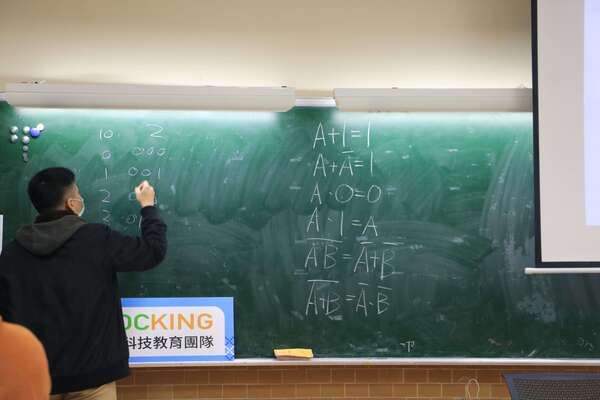 10 2
0 000
1 001
2 0
2 0
A+1=1
A+A̅=1
A·0=0
A·1=A
A̅B̅=A̅+B̅
A̅+̅B̅=A̅·B̅
OCKING
科技教育團隊